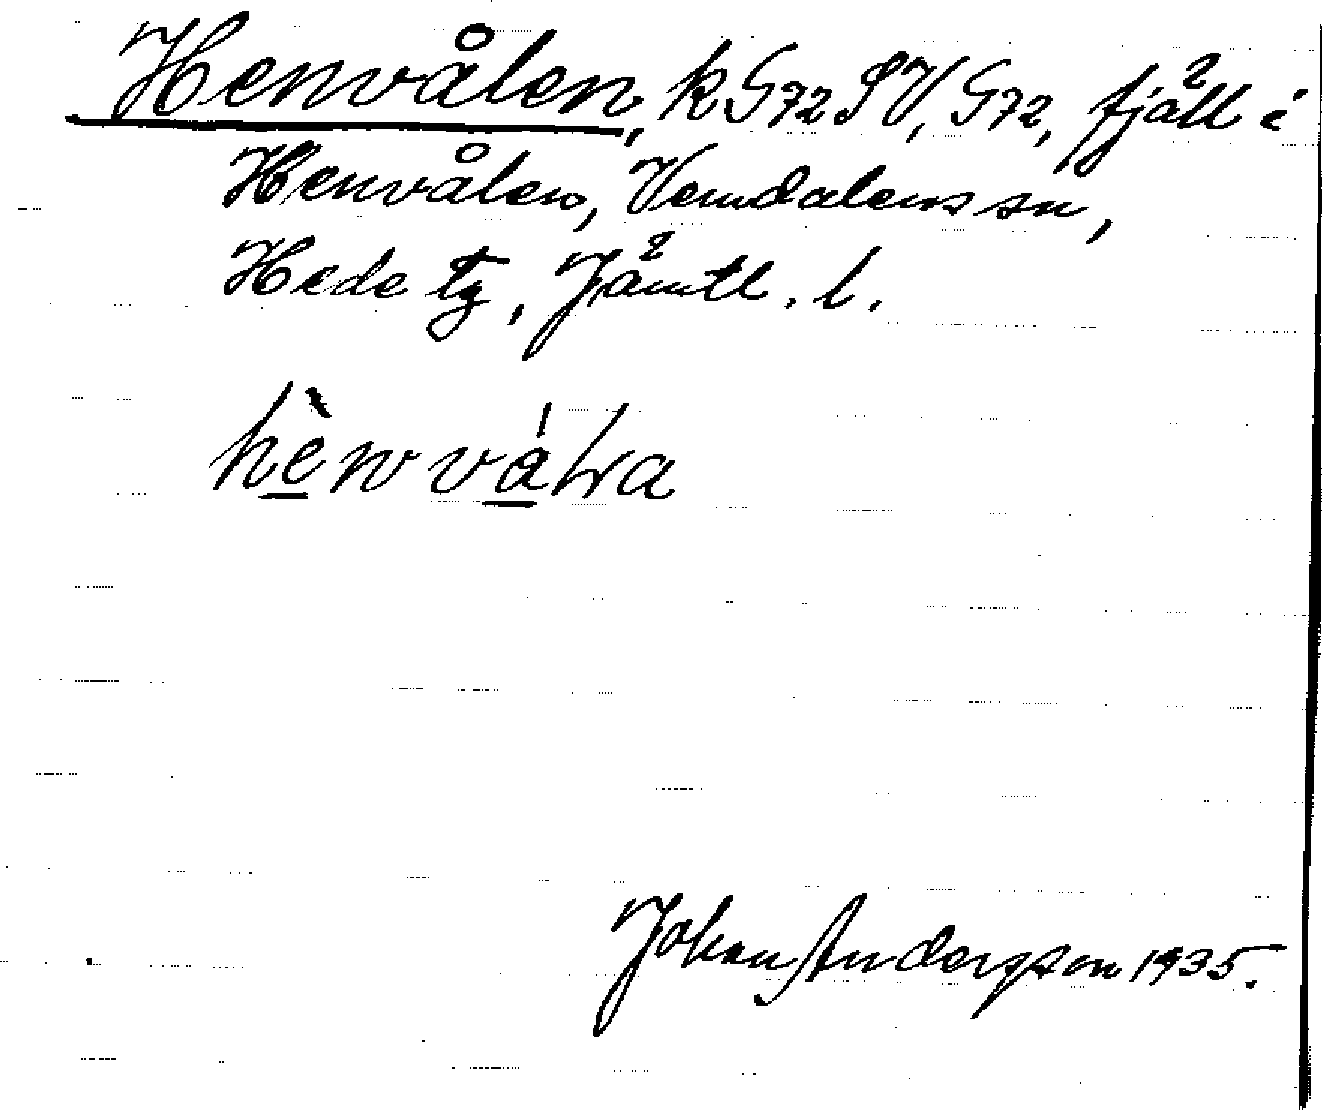 Henvålen, k G72SV, G72, fjäll i
Henvålen, Vemdalens sn,
Hede tg, Jämtl. l.
Johan Andersson 1935.